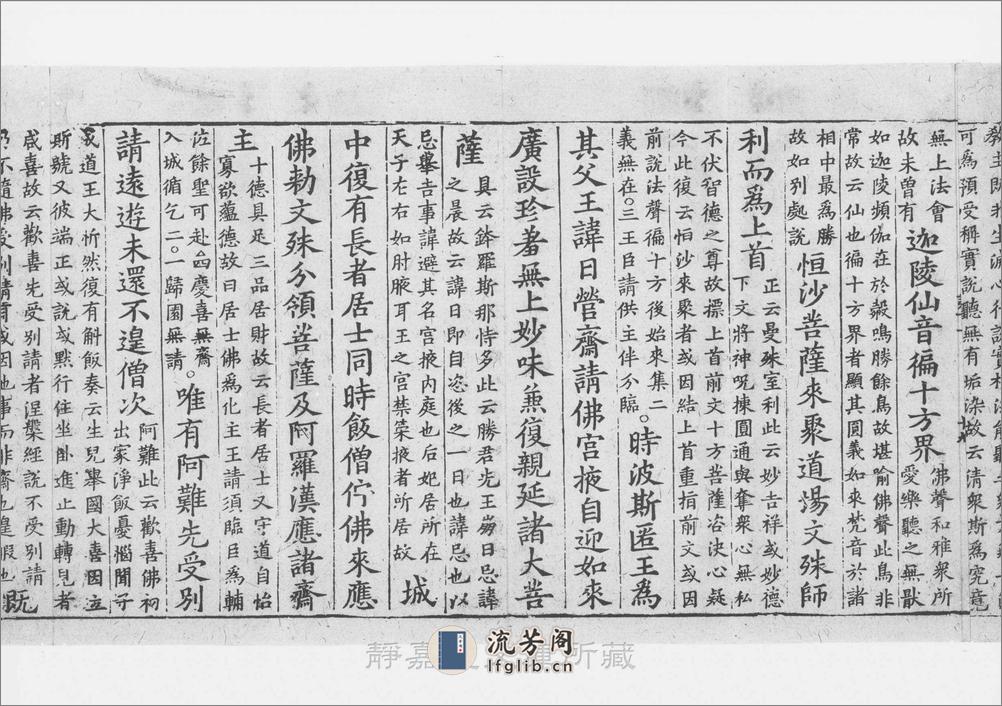 可為預受稱實說聽無有垢染故云清衆斯為究竟
無上法會
故未曾有
迦陵仙音徧十方界
佛聲和雅衆所
愛樂聽之無猒
如迦陵頻伽在於㲉鳴勝餘鳥故堪喻佛聲此鳥非
常故云仙也徧十方界者顯其圓義如來梵音於諸
相中最爲勝
故如別處說
恒沙菩薩來聚道場文殊師
利而爲上首
正云曼殊室利此云妙吉祥或妙德
下文將神呪揀圓通與奪衆心無私
不伏智德之尊故摽上首前文十方菩薩咨決心疑
今此復云恒沙來聚者或因結上首重指前文或因
前說法聲徧十方後始來集二
義無在。三王臣請供主伴分臨
。時波斯匿王爲
其父王諱日營齋請佛宮掖自迎如來
廣設珍羞無上妙味兼復親延諸大菩
薩
具云鉢羅斯那恃多此云勝君先王崩日忌諱
之晨故云諱日即自恣後之一日也諱忌也以
忌舉吉事諱避其名宮掖內庭也后妃居所在
天子左右如肘腋耳王之宮禁築掖者所居故
城
中復有長者居士同時飯僧佇佛來應
佛勅文殊分領菩薩及阿羅漢應諸齋
主
十德具足三品居財故云長者居士又守道自怡
寡欲蘊德故曰居士佛爲化主王請須臨臣爲輔
佐餘聖可赴四慶喜無齋
入城循乞二。一歸園無請
。唯有阿難先受別
請遠遊未還不遑僧次
阿難此云歡喜佛初
出家淨飯憂惱聞子
成道王大忻然復有斛飯奏云生兒舉國大喜因立
斯號又彼端正或說或默行住坐卧進止動轉見者
咸喜故云歡喜先受別請者涅槃經說不受別請
旣